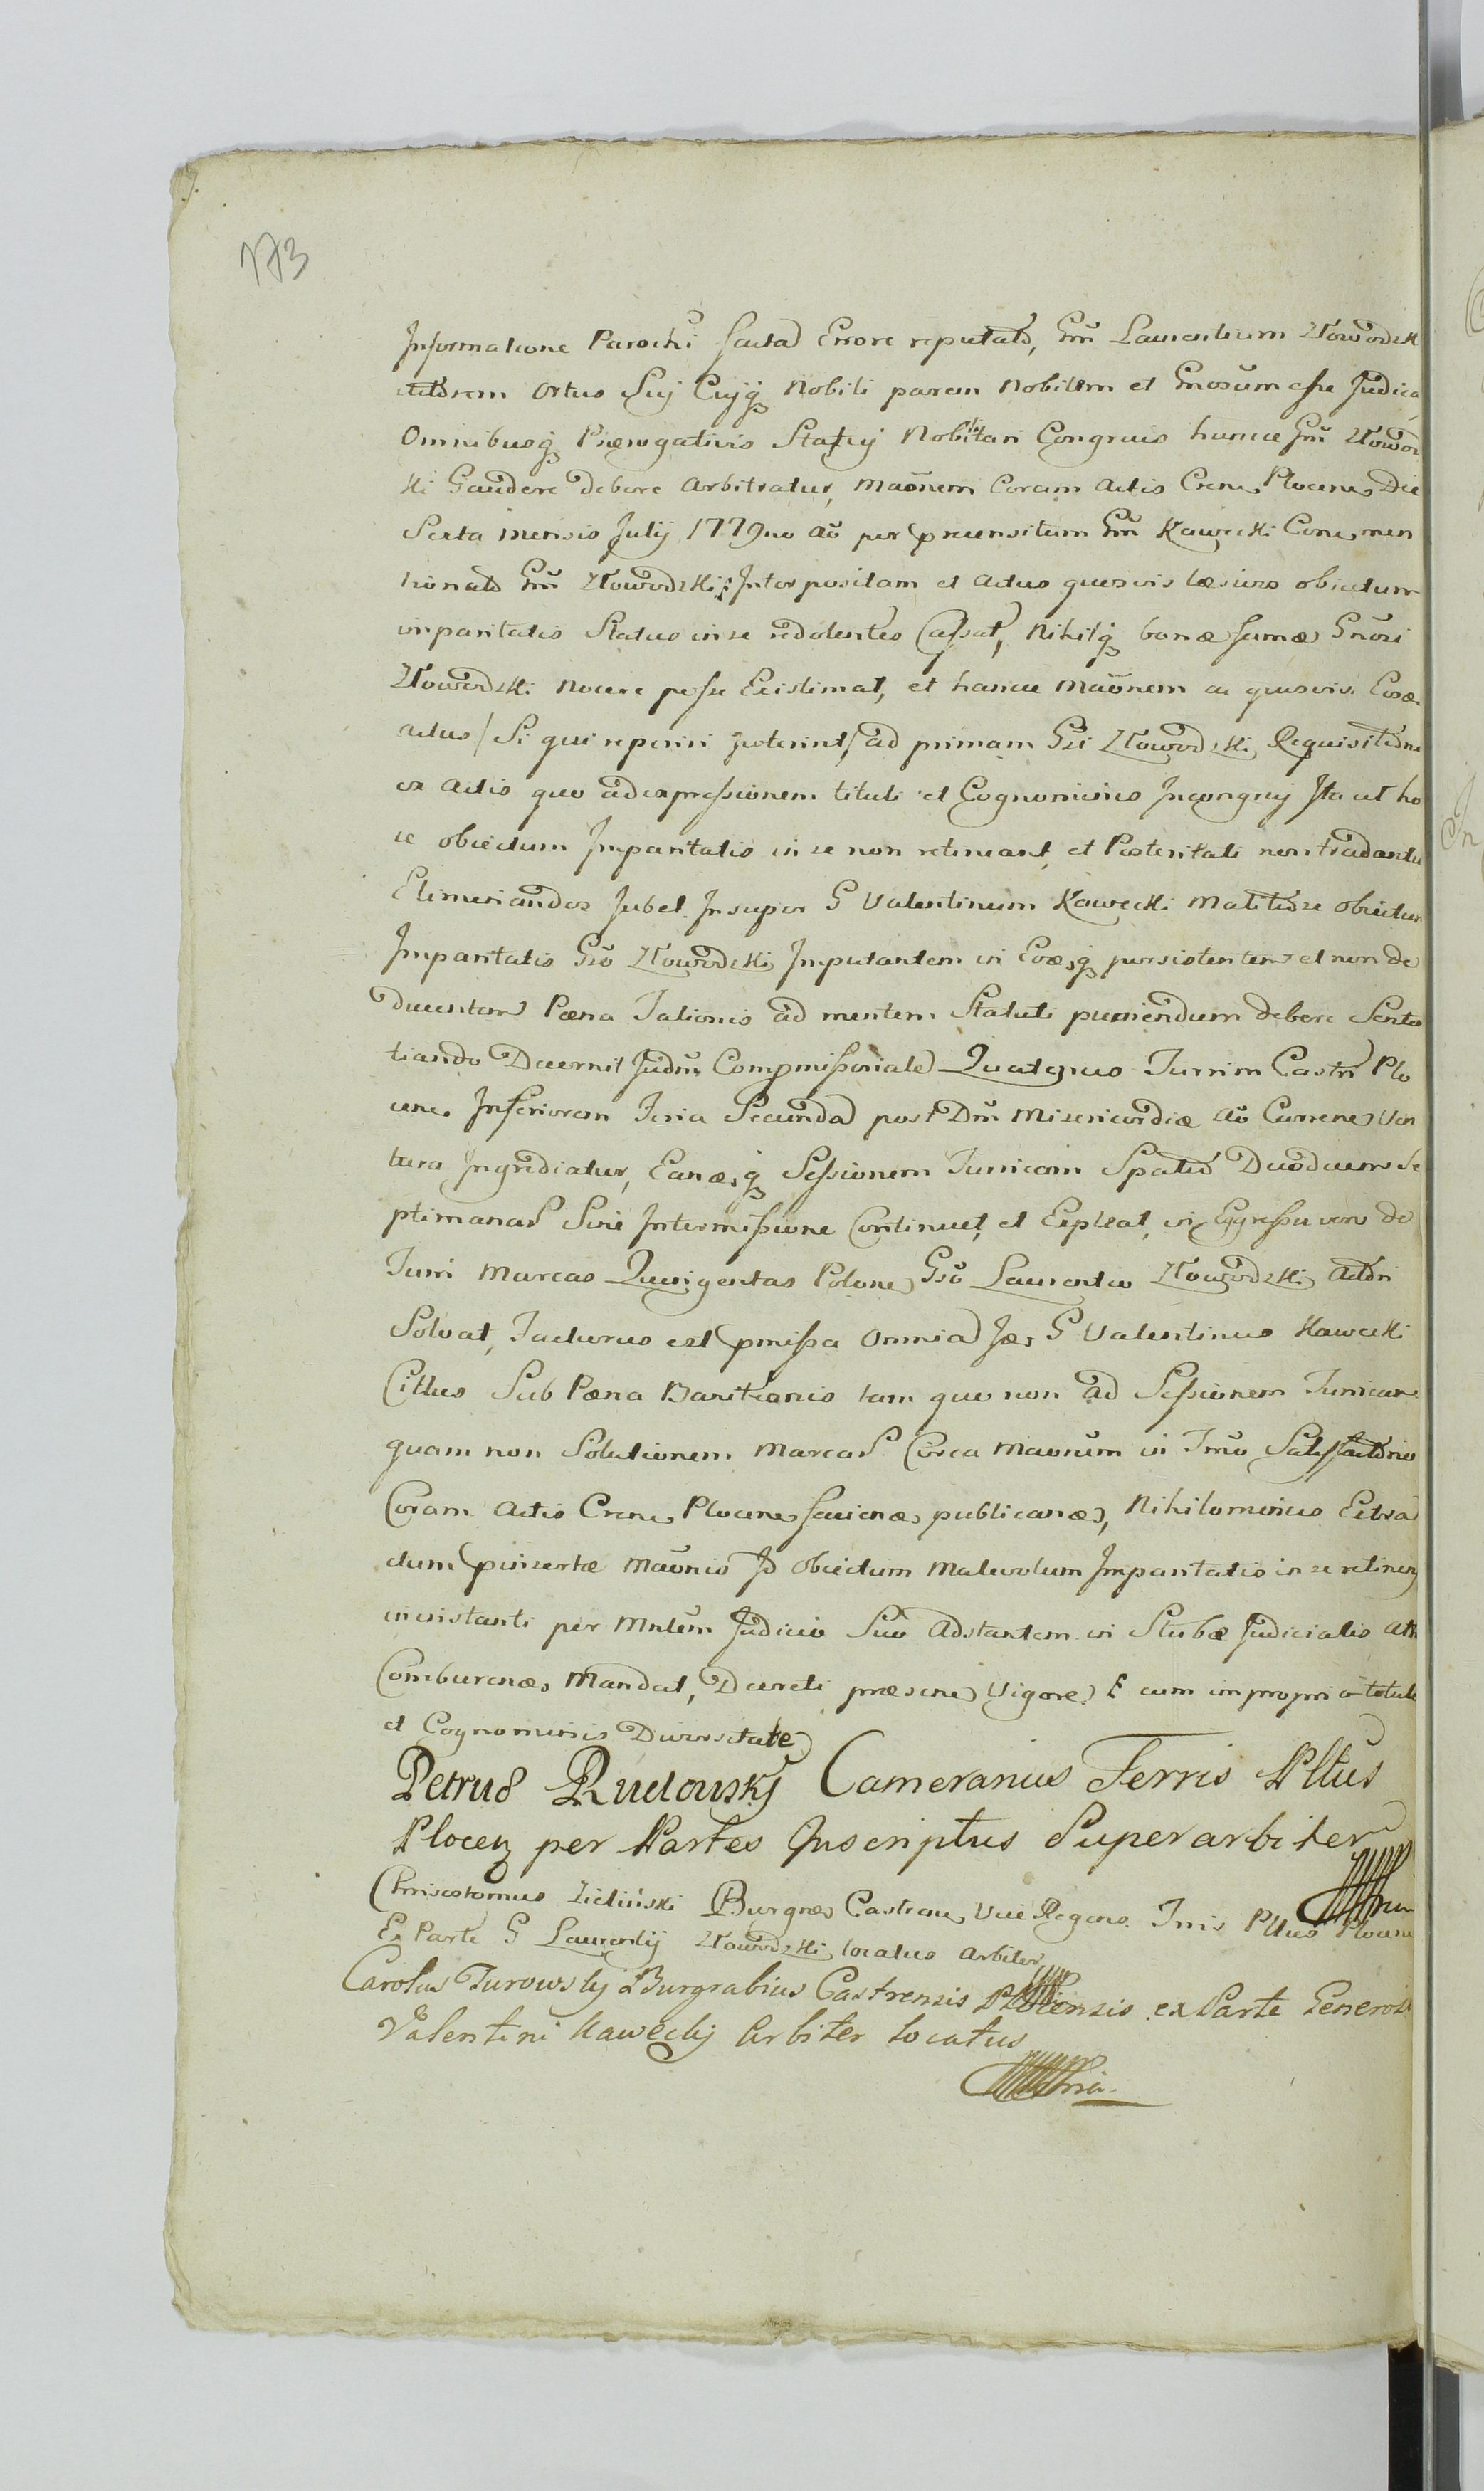 173
Informatione Parochi facta Errore reputato, Gm̃ Laurentium Nowodzk
Actorem ortus Sui Cuiq₃ Nobili parem Nobilem et Gnosum esse Judica
Omnibusq₃ Prærogativis Statuj Nobilitari Congruis hunce Gm̃ Nowodz
ki Gaudere debere arbitratur, Maõnem Coram Actis Crene Plocene Die
Sexta mensis Julij 1779no aõ per præcensitum Gm̃ Kawecki Cone men
tionato Gm̃ Nowodzki Interpositam et actus quosvis læsivos obiectum
imparitatis Status in se redolentes Cassat, Nihilq₃ bonæ famæ Gnosi
Nowodzki Nocere posse Existimat, et hance Maõnem ac quosvis Eosæ
actus / Si qui reperiri poterint / ad primam Gsi Nowodzki Requisitione
ex Actis quo ad expressionem tituli et Cognominis Incongruj Ita ut ho
ce obiectum Imparitatis in se non retineant, et Posteritati non tradantu
Eliminandos Jubet. Insuper G Valentinum Kawecki Malitiose obiectum
Imparitatis Gso Nowodzki Imputantem in Eoæq₃ persistentem et non de
ducentem Pæna Talionis ad mentem Statuti puniendum debere Senten
tiando Decernit Judm̃ Compromissoriale Quatenus Turrim Castri Plo
cene Inferiorem Feria Secunda post Dm̃ Misericordiæ aõ Currene ven
tura Ingrediatur, Eanæq₃ Sessionem Turricam Spatio Duodecem Se
ptimanas Sine Intermissione Continuet, et Expleat, in Eggressu vero de
Turri Marcas Quingentas Polone Gso Laurentio Nowodzki Actori
Solvat, Facturus est præmissa omnia Jæ G Valentinus Kawecki
Cittus Sub Pæna Bannitionis tam quo non ad Sessionem Turricam
quam non Solutionem Marcas Corca Maonum in Tmo Satisfactorio
Coram Actis Crene Plocene faciene publicanæ, Nihilominus Extra
ctum præinsertæ Maõnis Id obiectum Malevolum Imparitatis in se retinen
in instanti per Mnlem Judicio Suo Adstantem in Stubæ Judicialis
Comburenæ Mandat, Decreti præsene Vigore E cum improprio titulo
et Cognominis Diversitate
Petrus Rudowskj Camerarius Terris Pltus
Plocen per Partes Inscriptus Superarbiter
Chrisostomus Zieliński Burgræ Castren Vice Regens Trris Pltus Plocene
Ex Parte G Laurentij Nowodzki locatus Arbiter
Carolus Turowskj Burgrabius Castrensis Plocensis ex Parte Generosi
Valentini Kaweckj Arbiter locatus